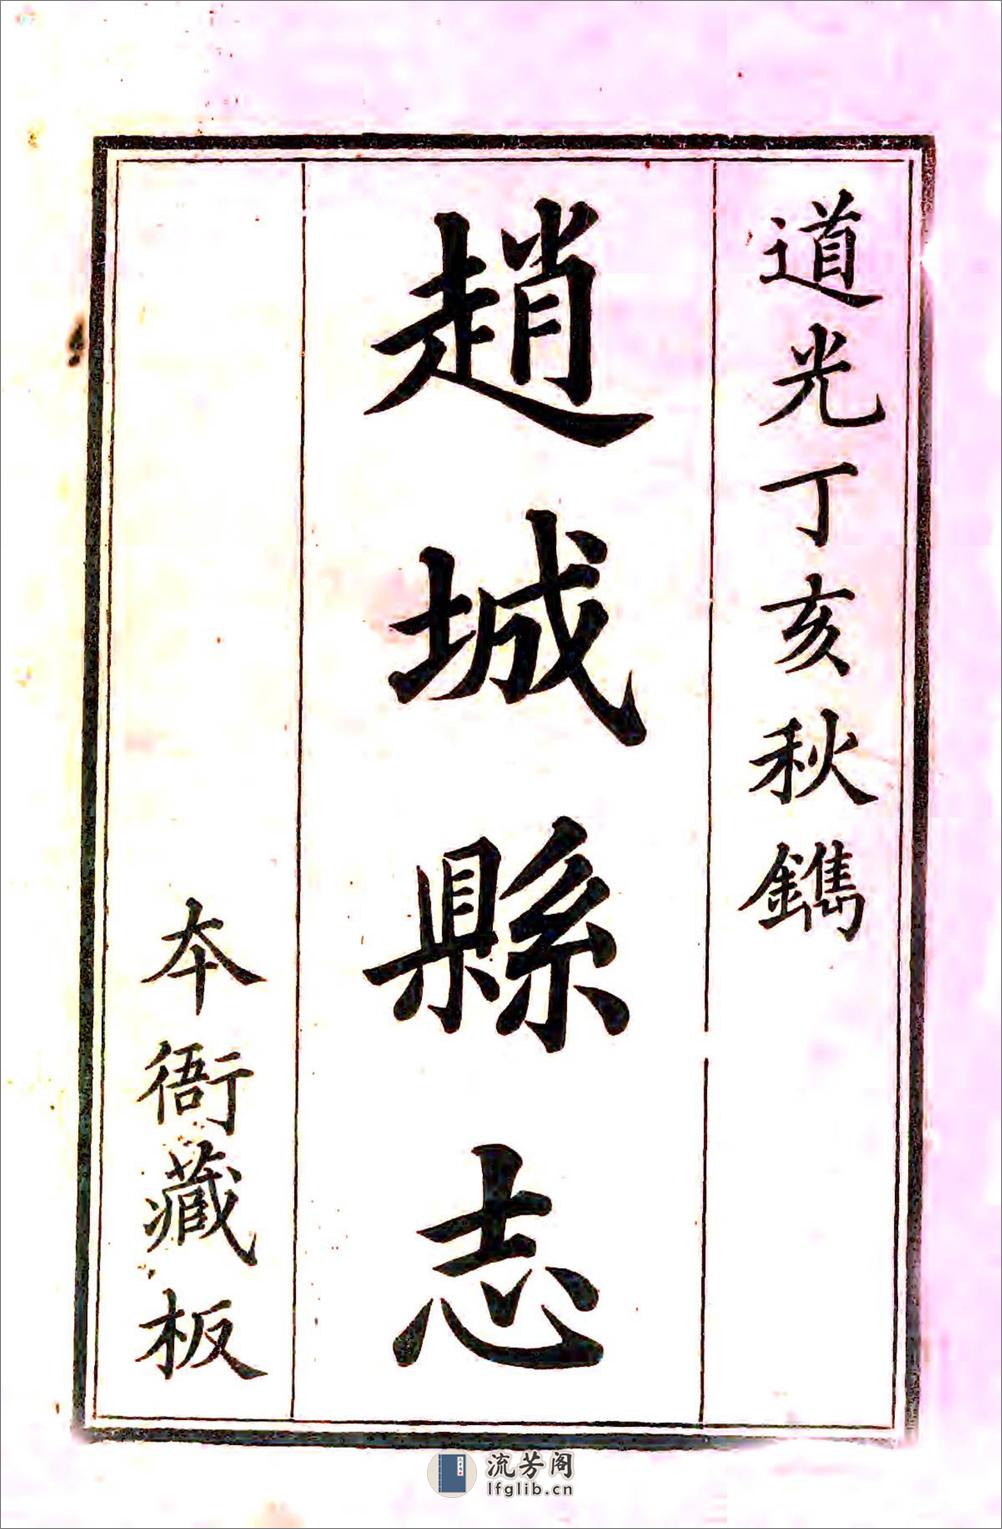 道光丁亥秋鐫
趙城縣志
本衙藏板
流芳阁
lfglib.cn